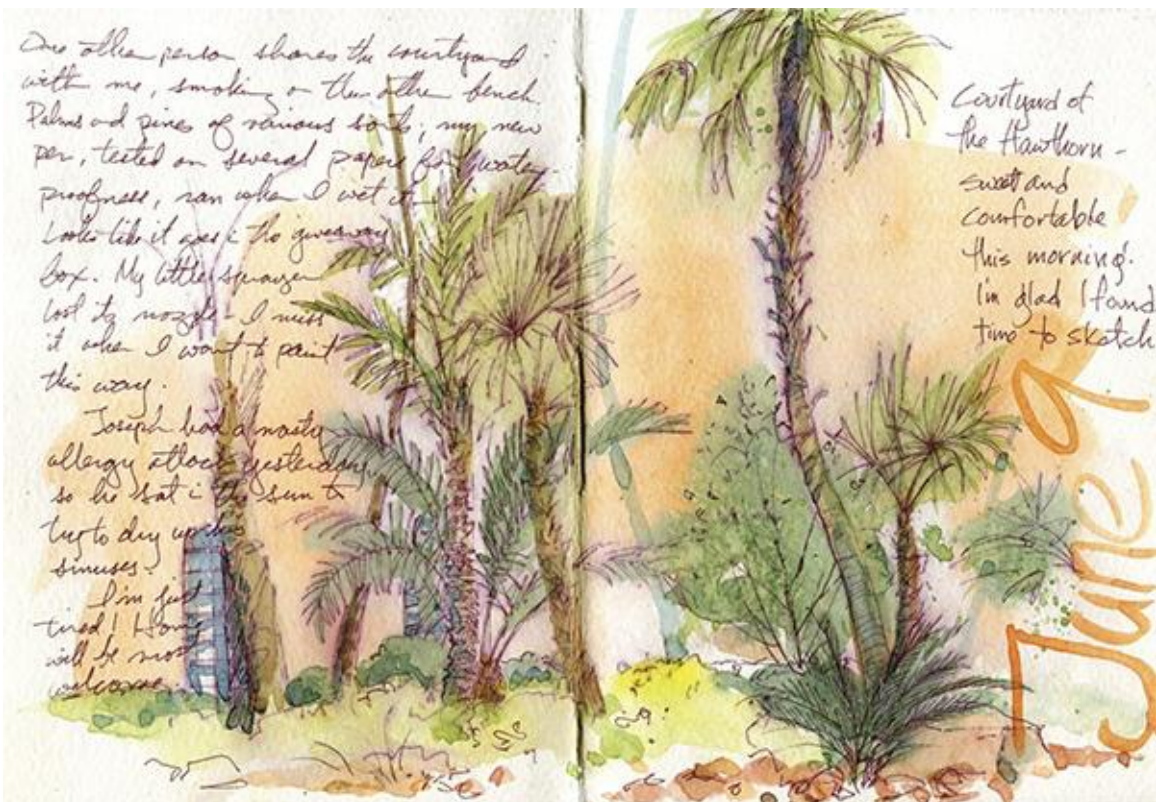 One other person shares the courtyard
with me, smoking on the other bench.
Palms and pines of various sorts; my new
pen, tested on several papers for water-
proofness, ran when I wet it.
Looks like it goes in the giveaway
box. My little sprayer
lost its nozzle - I miss
it when I want to paint
this way.
Joseph had a nasty
allergy attack yesterday
so he sat in the sun to
try to dry up his
sinuses.
I'm just
tired! Home
will be most
welcome.
Courtyard of
the Hawthorn -
sweet and
comfortable
this morning.
I'm glad I found
time to sketch
June 9